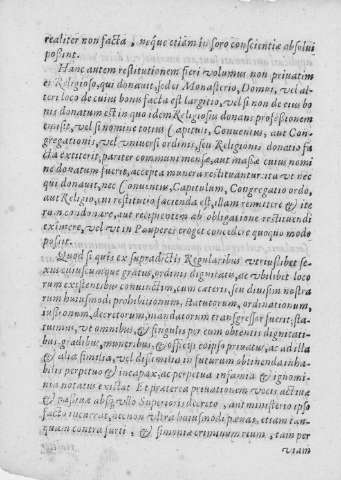 realiter non facta, neque etiam in foro conscientiæ absolui
possint.
Hanc autem restitutionem fieri volumus non priuatim
ei Religioso, qui donauit, sed ei Monasterio, Domui, vel al
teri loco de cuius bonis facta est largitio, vel si non de eius bo
nis donatum est in quo idem Religiosus donans professionem
emisit, vel si nomine totius Capituli, Conuentus, aut Con
gregationis, vel vniuersi ordinis, seu Religionis donatio fa
cta extiterit, pariter communi mensæ, aut massæ cuius nomi
ne donatum fuerit, accepta munera restituantur. ita vt nec
qui donauit, nec Conuentus, Capitulum, Congregatio ordo,
aut Religio, cui restitutio facienda est, illam remittere & ite
rum condonare, aut recipientem ab obligatione restituendi
eximere, vel vt in Pauperes eroget concedere quoquo modo
possit.
Quod si quis ex supradictis Regularibus vtriuslibet se-
xus cuiuscumque gradus, ordinis dignitatis, ac vbilibet loco
rum existentibus coniunctim, cum cæteri, seu diuisim nostra
rum huiusmodi prohibitionum, statutorum, ordinationum,
iussionum, decretorum, mandatorum transgressor fuerit; sta-
tuimus, vt omnibus & singulis per eum obtentis dignitati-
bus, gradibus, muneribus, & officijs eo ipso priuatus, ac ad illa
& alia similia, vel dissimilia in futurum obtinenda inha-
bilis perpetuo & incapax, ac perpetua infamia & ignomi
nia notatus existat. Et præterea priuationem vocis actiuæ
& passiuæ absq; vllo Superioris decreto, aut ministerio ipso
facto incurrat, nec non vltra huiusmodi pœnas, etiam tan-
quam contra furti, & simoniæ criminum reum, tam per
viam